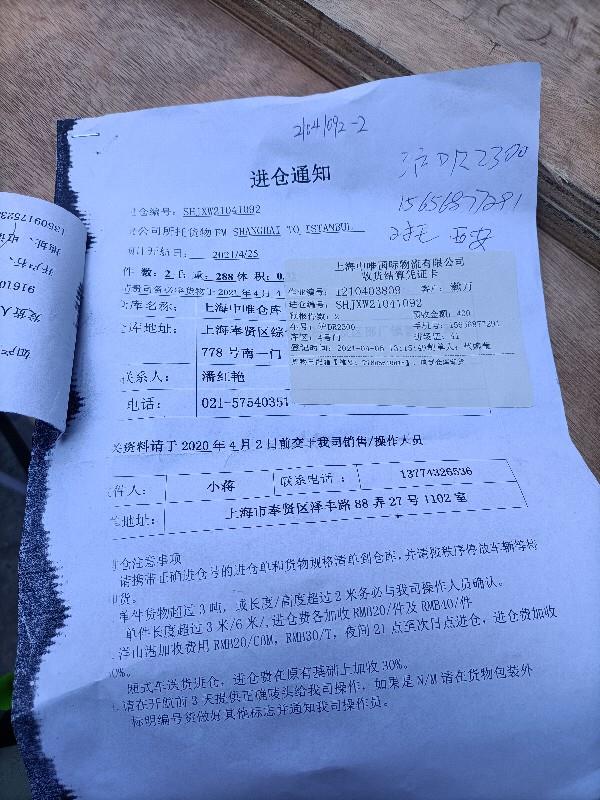 21041092-2
沪DR2300
15656877291
进仓通知
仓编号：SHJXW21041092
公司所托货物FM SHANGHAI TO ISTANBUL
计开航日：2021/4/25
件 数：2 毛 重：288 体 积：0.
上海申唯国际物流有限公司
收货结算凭证卡
进仓编号：SHJXW21041092
车号：沪DR2300
库区：4号门
库名称：上海申唯仓库
库地址：上海奉贤区综
778 号南一门
联系人：潘红艳
电话：021-57540351
关资料请于 2020 年 4 月 2 日前交于我司销售/操作人员
件人：小蒋 联系电话：13774326536
地址：上海市奉贤区泽丰路 88 弄 27 号 1102 室
仓注意事项
请携带正确进仓号的进仓单和货物规格清单到仓库，并请按秩序停放车辆等待
货。
单件货物超过 3 吨，或长度/高度超过 2 米务必与我司操作人员确认。
单件长度超过 3 米/6 米/，进仓费各加收 RMB20/件及 RMB40/件
洋山港加收费用 RMB20/CBM, RMB30/T, 夜间 21 点至次日点进仓，进仓费加收
0%。
厢式车送货进仓，进仓费在原有基础上加收 30%。
请在开航前 3 天提供正确唛头给我司操作，如果是 N/M 请在货物包装外
标明编号或做好其他标志并通知我司操作员。